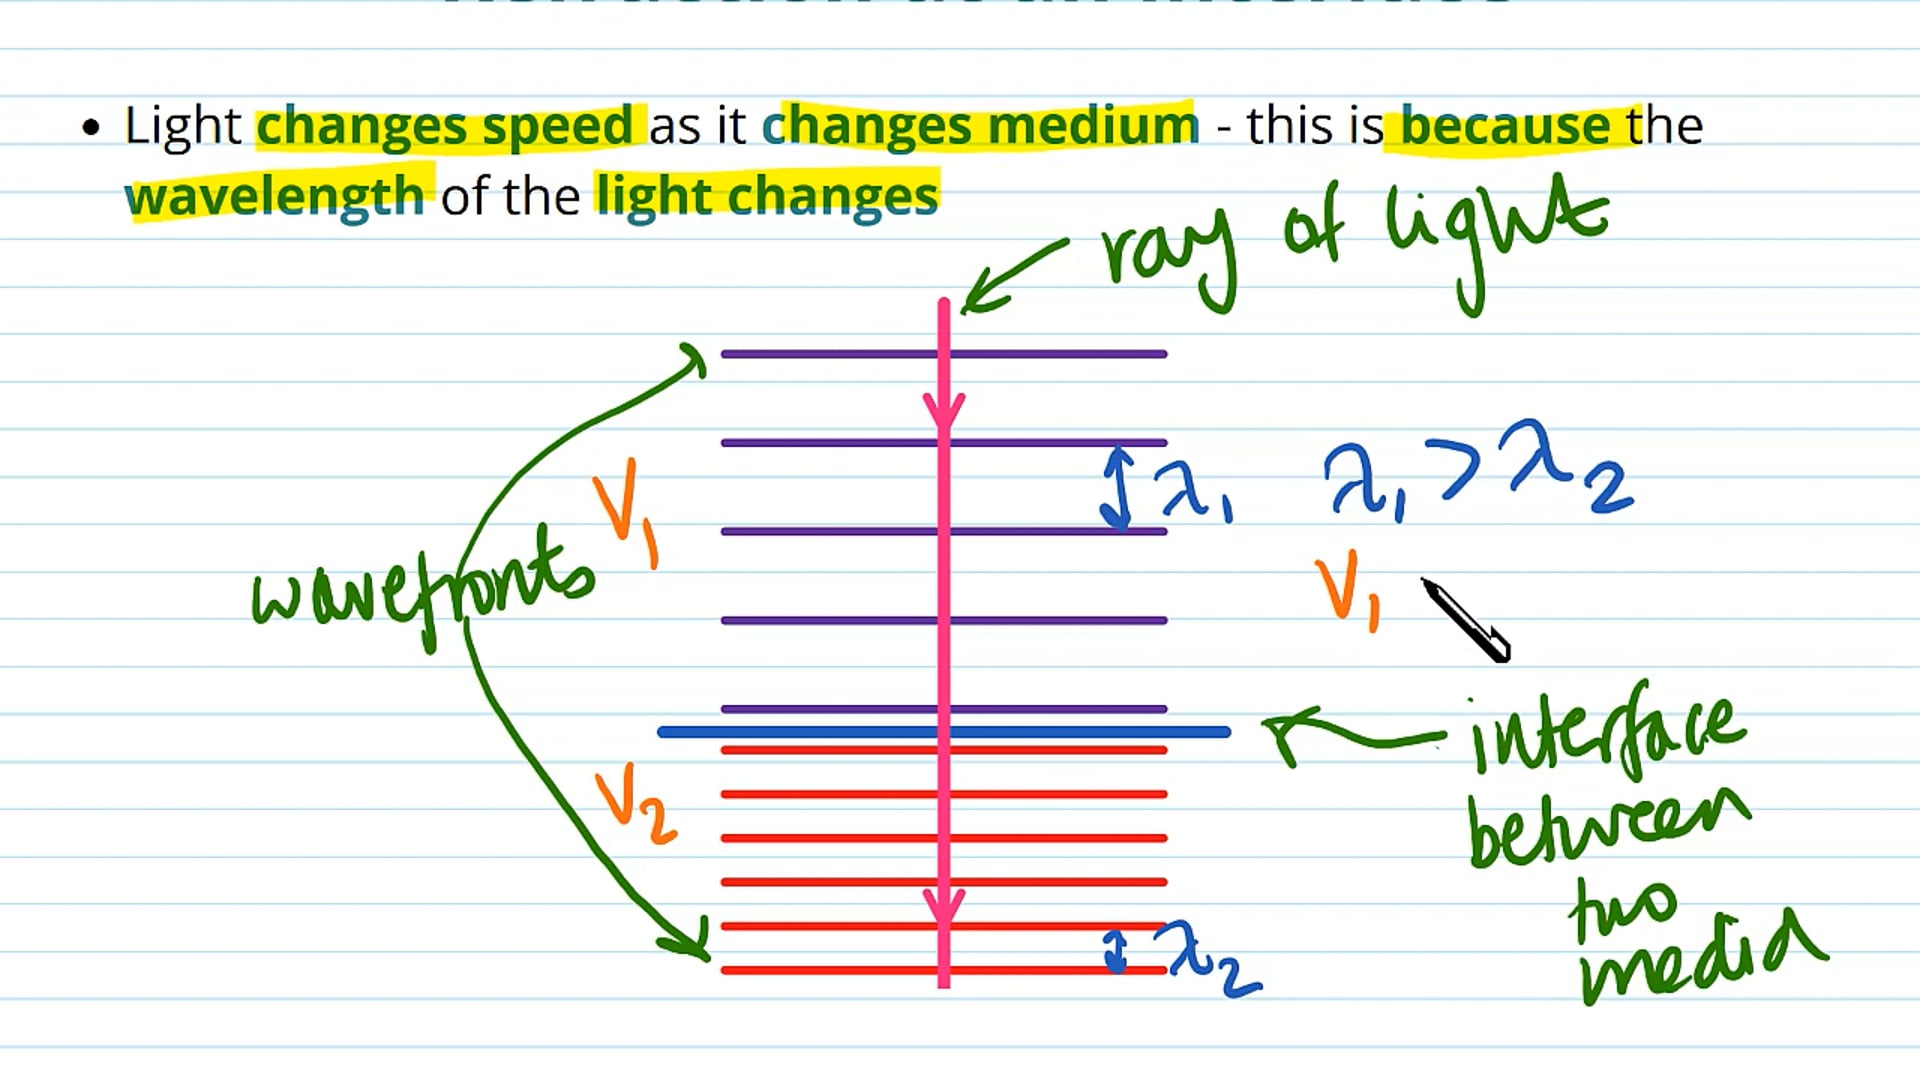 • Light changes speed as it changes medium - this is because the
wavelength of the light changes
ray of light
V₁
λ₁
λ₁ > λ₂
wavefronts
V₁
interface
between
two
media
V₂
λ₂